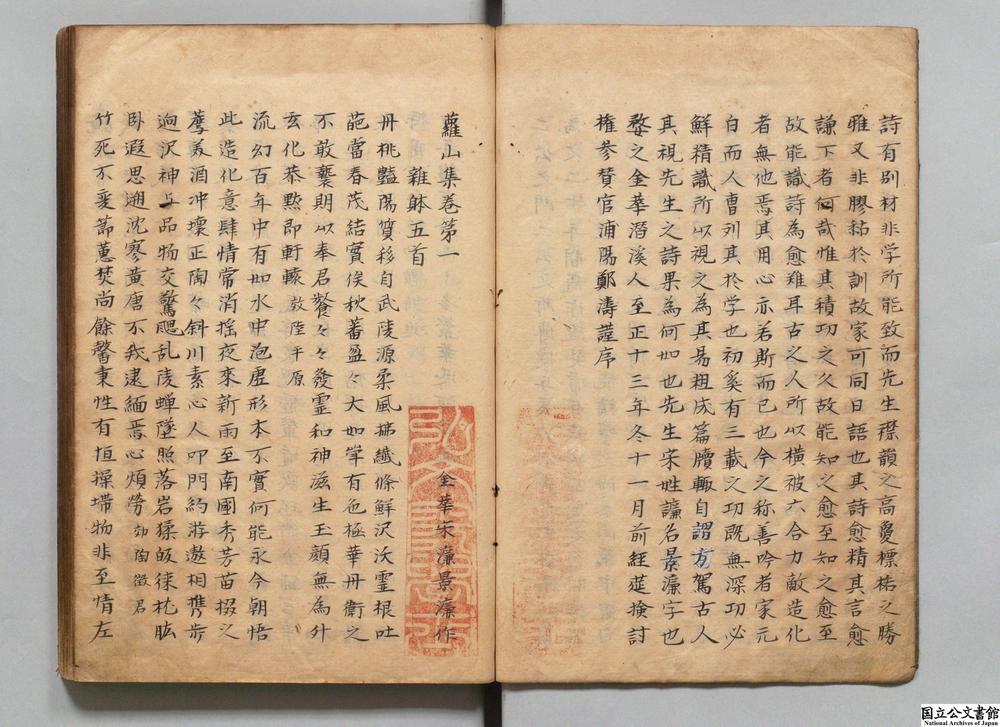 詩有別材非学所能致而先生襟韻之高愛標祐之勝
雅又非膠黏於訓故家可同日語也其詩愈精其言愈
謙下者何哉惟其積功之久故能知之愈至知之愈至
故能識詩為愈難耳古之人所以横被六合力敵造化
者無他焉其用心亦若斯而已也今之称善吟者家元
白而人曹刘其於学也初奚有三載之功既無深功必
鮮精識所以視之為其易粗成篇牘輙自謂方駕古人
其視先生之詩果為何如也先生宋姓謙名景濂字也
婺之金華潛溪人至正十三年冬十一月前經筵検討
権参賛官浦陽鄭濤謹序
蘿山集巻第一
金華宋濂景濂作
雜躰五首
丹桃豔陽質移自武陵源柔風拂纖條鮮沢沃霊根吐
葩當春茂結實俟秋蕃盈々大如斝有色極華丹衞之
不敢褻期以奉君餐々々發霊和神滋生玉顔無為外
玄化恭黙即軒轅效陸平原
流幻百年中有如水中泡虚形本不實何能永今朝悟
此造化意肆情常消揺夜來新雨至南園秀芳苗掇之
薦美酒冲懐正陶々斜川素心人叩門約游遨相携歩
迥沢神与品物交驚颸乱陵蝉墜照落岩猱皈徠枕肱
卧遐思遡沈寥黄唐不我逮緬焉心煩勞効陶徴君
竹死不変節蕙焚尚餘馨秉性有恒操壒物非至情左
国立公文書館
National Archives of Japan